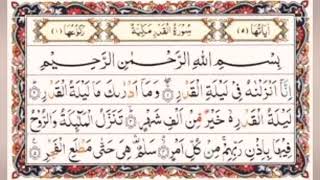 اٰيَاتُهَا (٥) سُوْرَةُ الْقَدْرِ مَكِّيَّةٌ رُكُوْعُهَا (١)
بِسْمِ اللهِ الرَّحْمٰنِ الرَّحِيْمِ
اِنَّاۤ اَنْزَلْنٰهُ فِيْ لَيْلَةِ الْقَدْرِ ۝ وَمَاۤ اَدْرٰىكَ مَا لَيْلَةُ الْقَدْرِ ۝
لَيْلَةُ الْقَدْرِ ەۙ خَيْرٌ مِّنْ اَلْفِ شَهْرٍ ۝ تَنَزَّلُ الْمَلٰٓئِكَةُ وَالرُّوْحُ
فِيْهَا بِاِذْنِ رَبِّهِمْ ۚ مِنْ كُلِّ اَمْرٍ ۝ سَلٰمٌ ۛ هِيَ حَتّٰى مَطْلَعِ الْفَجْرِ ۝